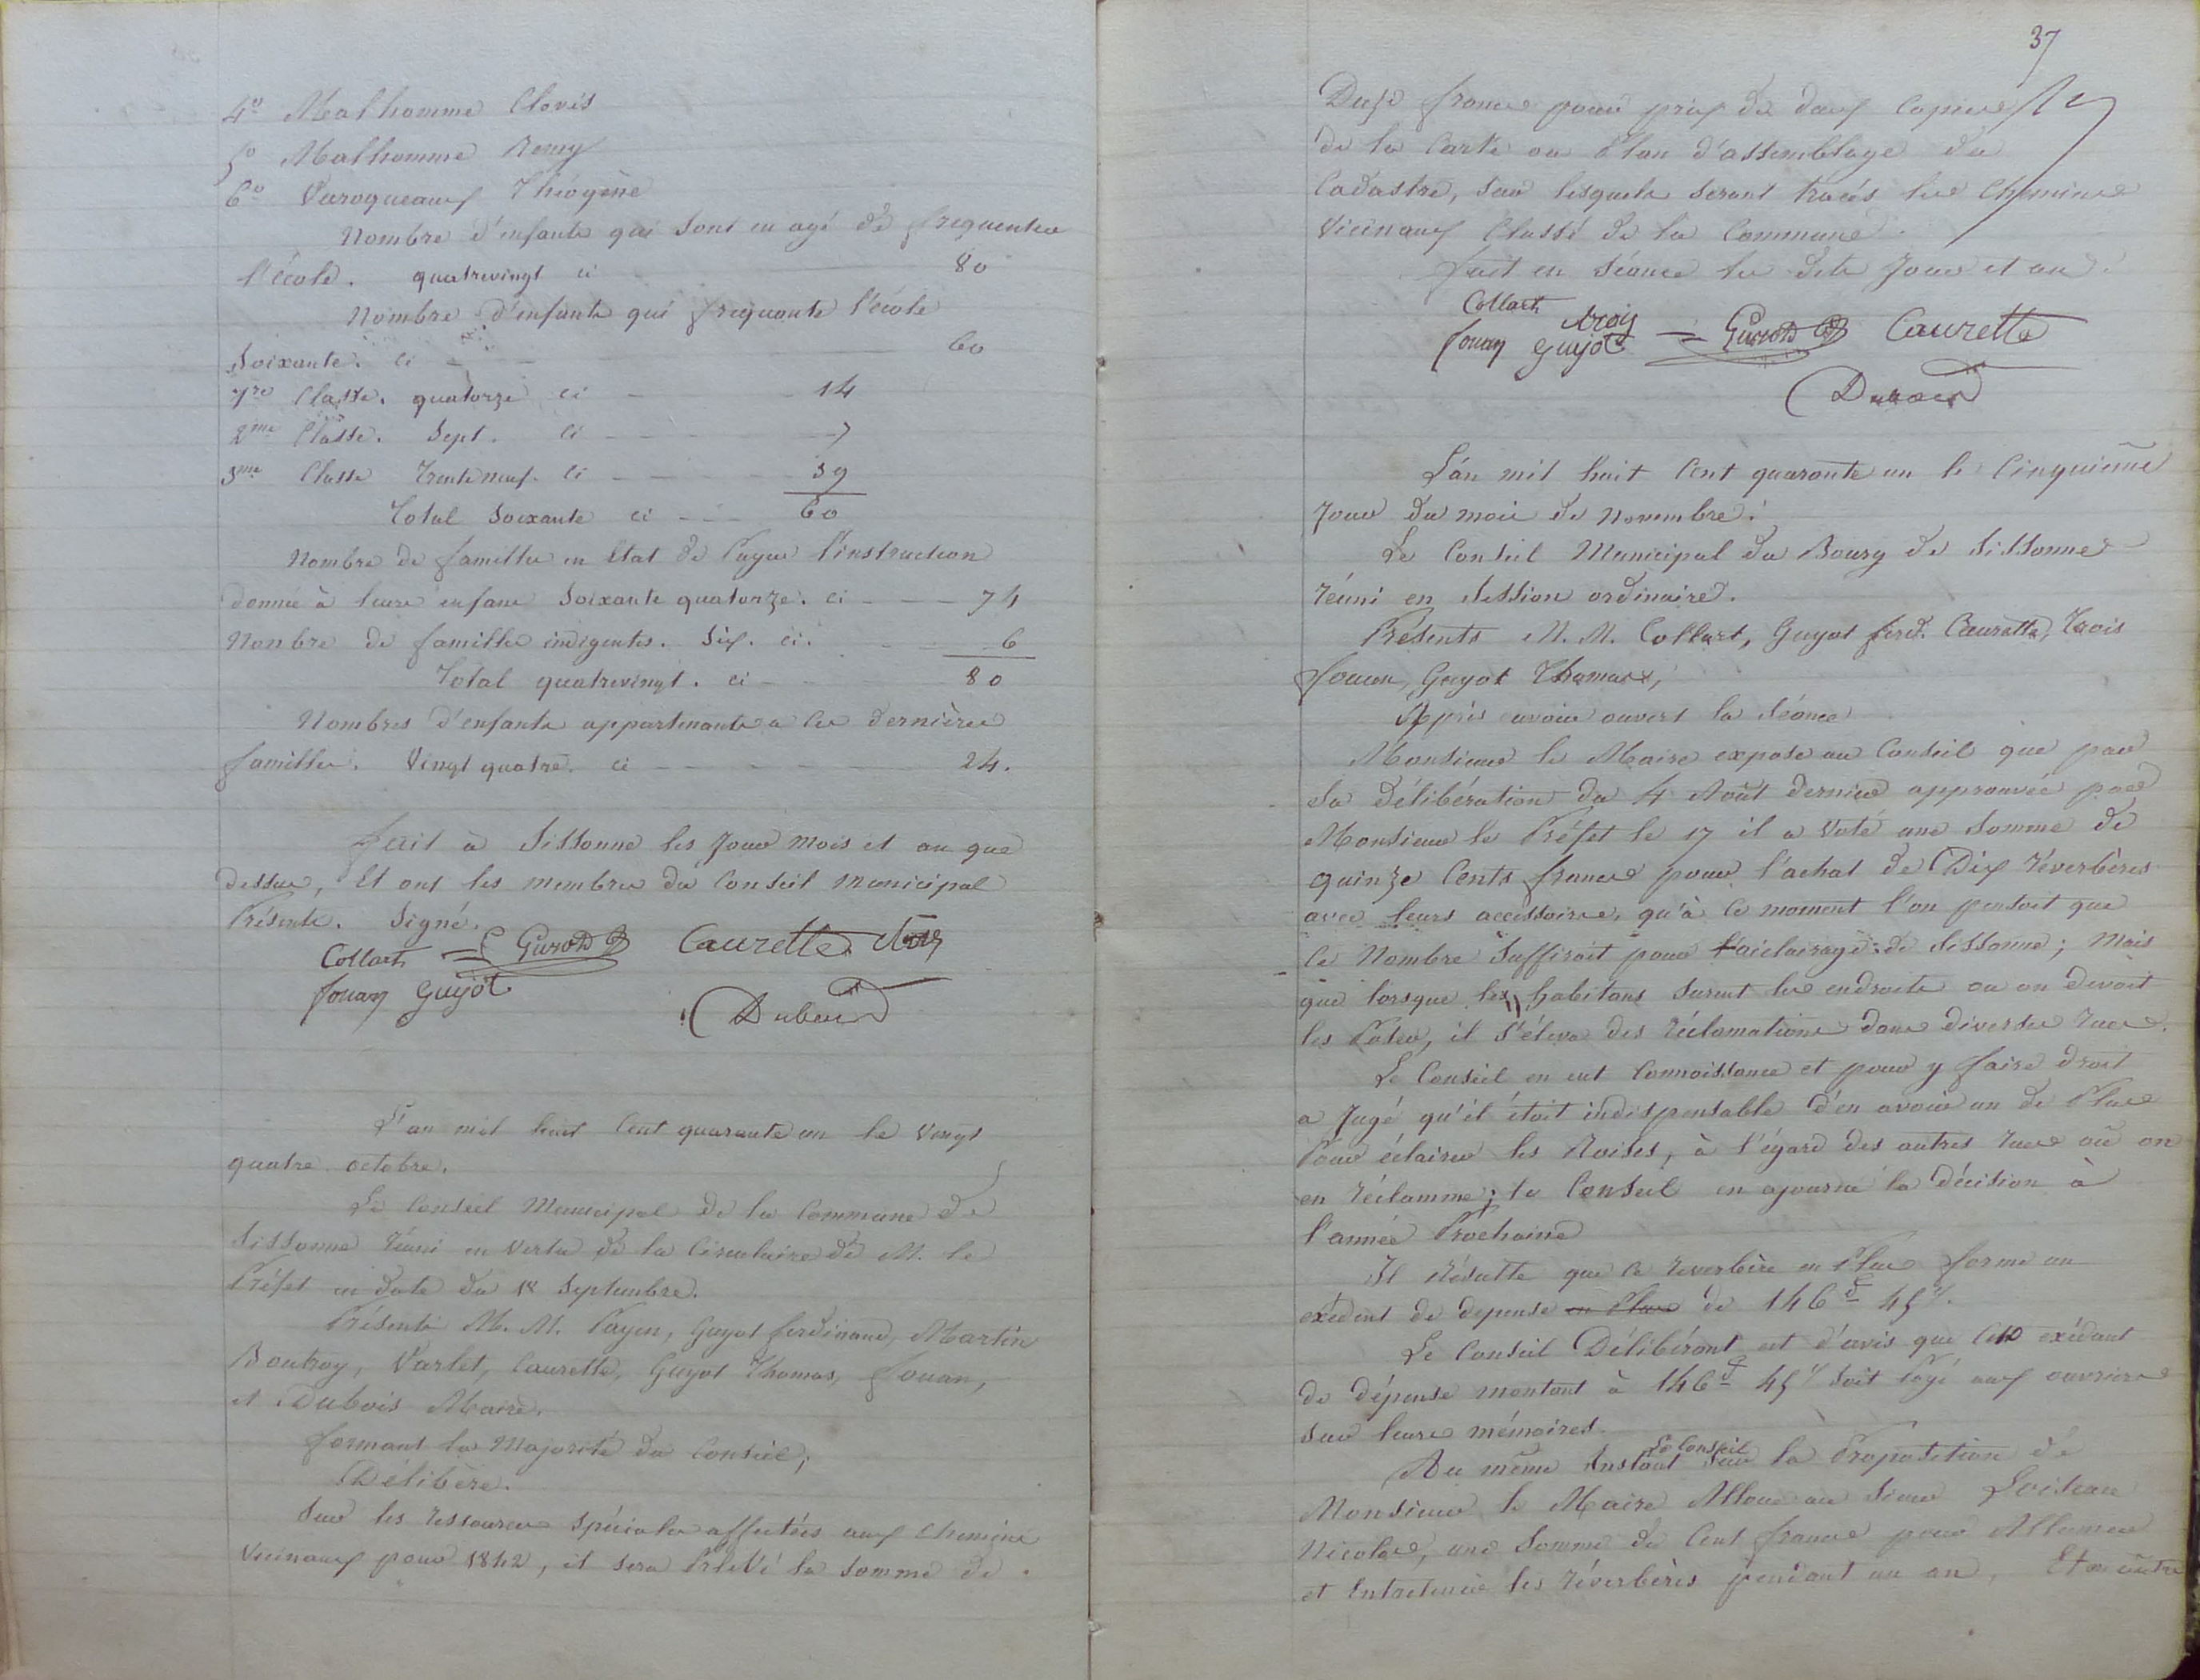 4° Malhomme Clovis
5° Malhomme Remy
6° Varoqueaux Théogène
Nombre d'enfants qui sont en age de frequenter
l'école. quatrevingt ci 80
Nombre d'enfants qui frequente l'école
Soixante. ci 60
1re Classe. quatorze ci 14
2me Classe. Sept. ci 7
3me Classe Trente neuf. ci 39
Total Soixante ci 60
Nombre de familles en Etat de Payer l'instruction
donnée à leurs enfans Soixante quatorze. ci 74
Nonbre de familles indigentes. Six. ci. 6
Total quatrevingt. ci 80
Nombres d'enfants appartenants a ces dernières
familles. Vingt quatre. ci 24.
Fait à Sissonne les Jour mois et an que
dessus, Et ont les membres du Conseil municipal
Présents. Signé.
Collart Caurette
Jouan Guyot
Dubois
L'an mil huit Cent quarante un le Vingt
quatre octobre.
Le Conseil Municipal de la Commune de
Sissonne réuni en vertu de la Circulaire de M. le
Préfet en date du 18 Septembre.
Présents M. M. Payen, Guyot ferdinand, Martin
Boutroy, Varlet, Caurette, Guyot Thomas, Jouan,
et Dubois Maire.
formant la Majorité du Conseil,
Délibère.
Sur les ressources spéciales affectées aux chemins
Vicinaux pour 1842, il sera Prélevé la somme de
37
Douze francs pour prix de deux Copies
de la Carte ou Plan d'assemblage du
Cadastre, sur lesquels seront tracés les Chemins
Vicinaux Classé de la Commune.
fait en Séance les dits Jour et an.
Collart Caurette
Jouan Guyot
Dubois
L'an mil huit Cent quarante un le Cinquième
Jour du mois de Novembre.
Le Conseil Municipal du Bourg de Sissonne
réuni en session ordinaire.
Présents M. M. Collart, Guyot ferd. Caurette,
Jouan, Guyot Thomas,
Après avoir ouvert la Séance
Monsieur le Maire expose au Conseil que par
Sa Délibération du 4 Août dernier approuvée par
Monsieur le Préfet le 17 il a Voté une Somme de
quinze Cents francs pour l'achat de Dix réverbères
avec leurs accessoires, qu'à ce moment l'on pensoit que
ce Nombre suffiroit pour l'aiclairage de Sissonne; Mais
que lorsque les habitans surent les endroits ou on devoit
les Poser, il s'éleva des réclamations dans diverses rues.
Le Conseil en eut Connoissance et pour y faire droit
a Jugé qu'il étoit indispensable d'en avoir un de Plus
Pour éclairer les Roises, à l'égard des autres rues où on
en réclamme; le Conseil en ajourne la décision à
l'année Prochaine
Il résulte que ce reverbère en Plus forme un
exedent de depense en Plus de 146 f 45 c.
Le Conseil Délibérant est d'avis que cet exédant
de dépense montant à 146 f 45 c soit Payé aux ouvriers
sur leurs mémoires.
Au même Instant Le Conseil sur la Proposition de
Monsieur le Maire Alloue au Sieur
Nicolas, une Somme de Cent francs pour Allumer
et Entretenir les réverbères pendant un an, Et en outre